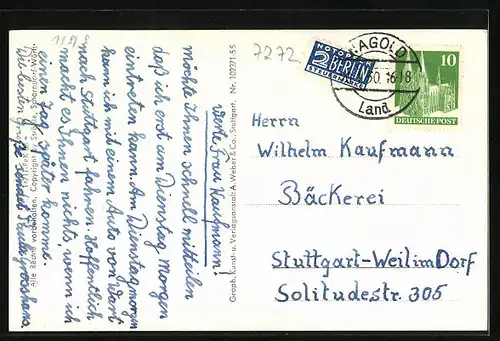 11/8/8
7272
NOTOPFER
2 BERLIN
STEUERMARKE
NAGOLD
50. 16-18
Land
10
DEUTSCHE POST
Werte Frau Kaufmann!
möchte Ihnen schnell mitteilen
daß ich erst am Dienstag Morgen
eintreten kann. Am Dienstag morgen
kann ich mit einem Auto von dort
nach Stuttgart fahren. Hoffentlich
macht es Ihnen nichts, wenn ich
einen Tag später komme.
Die besten Grüße sendet
Graph. Kunst- u. Verlagsanstalt A. Weber & Co., Stuttgart. Nr. 102371-55
Alle Rechte vorbehalten. Copyright by Strähle, Schorndorf-Württ.
Herrn
Wilhelm Kaufmann
Bäckerei
Stuttgart-Weil im Dorf
Solitudestr. 305